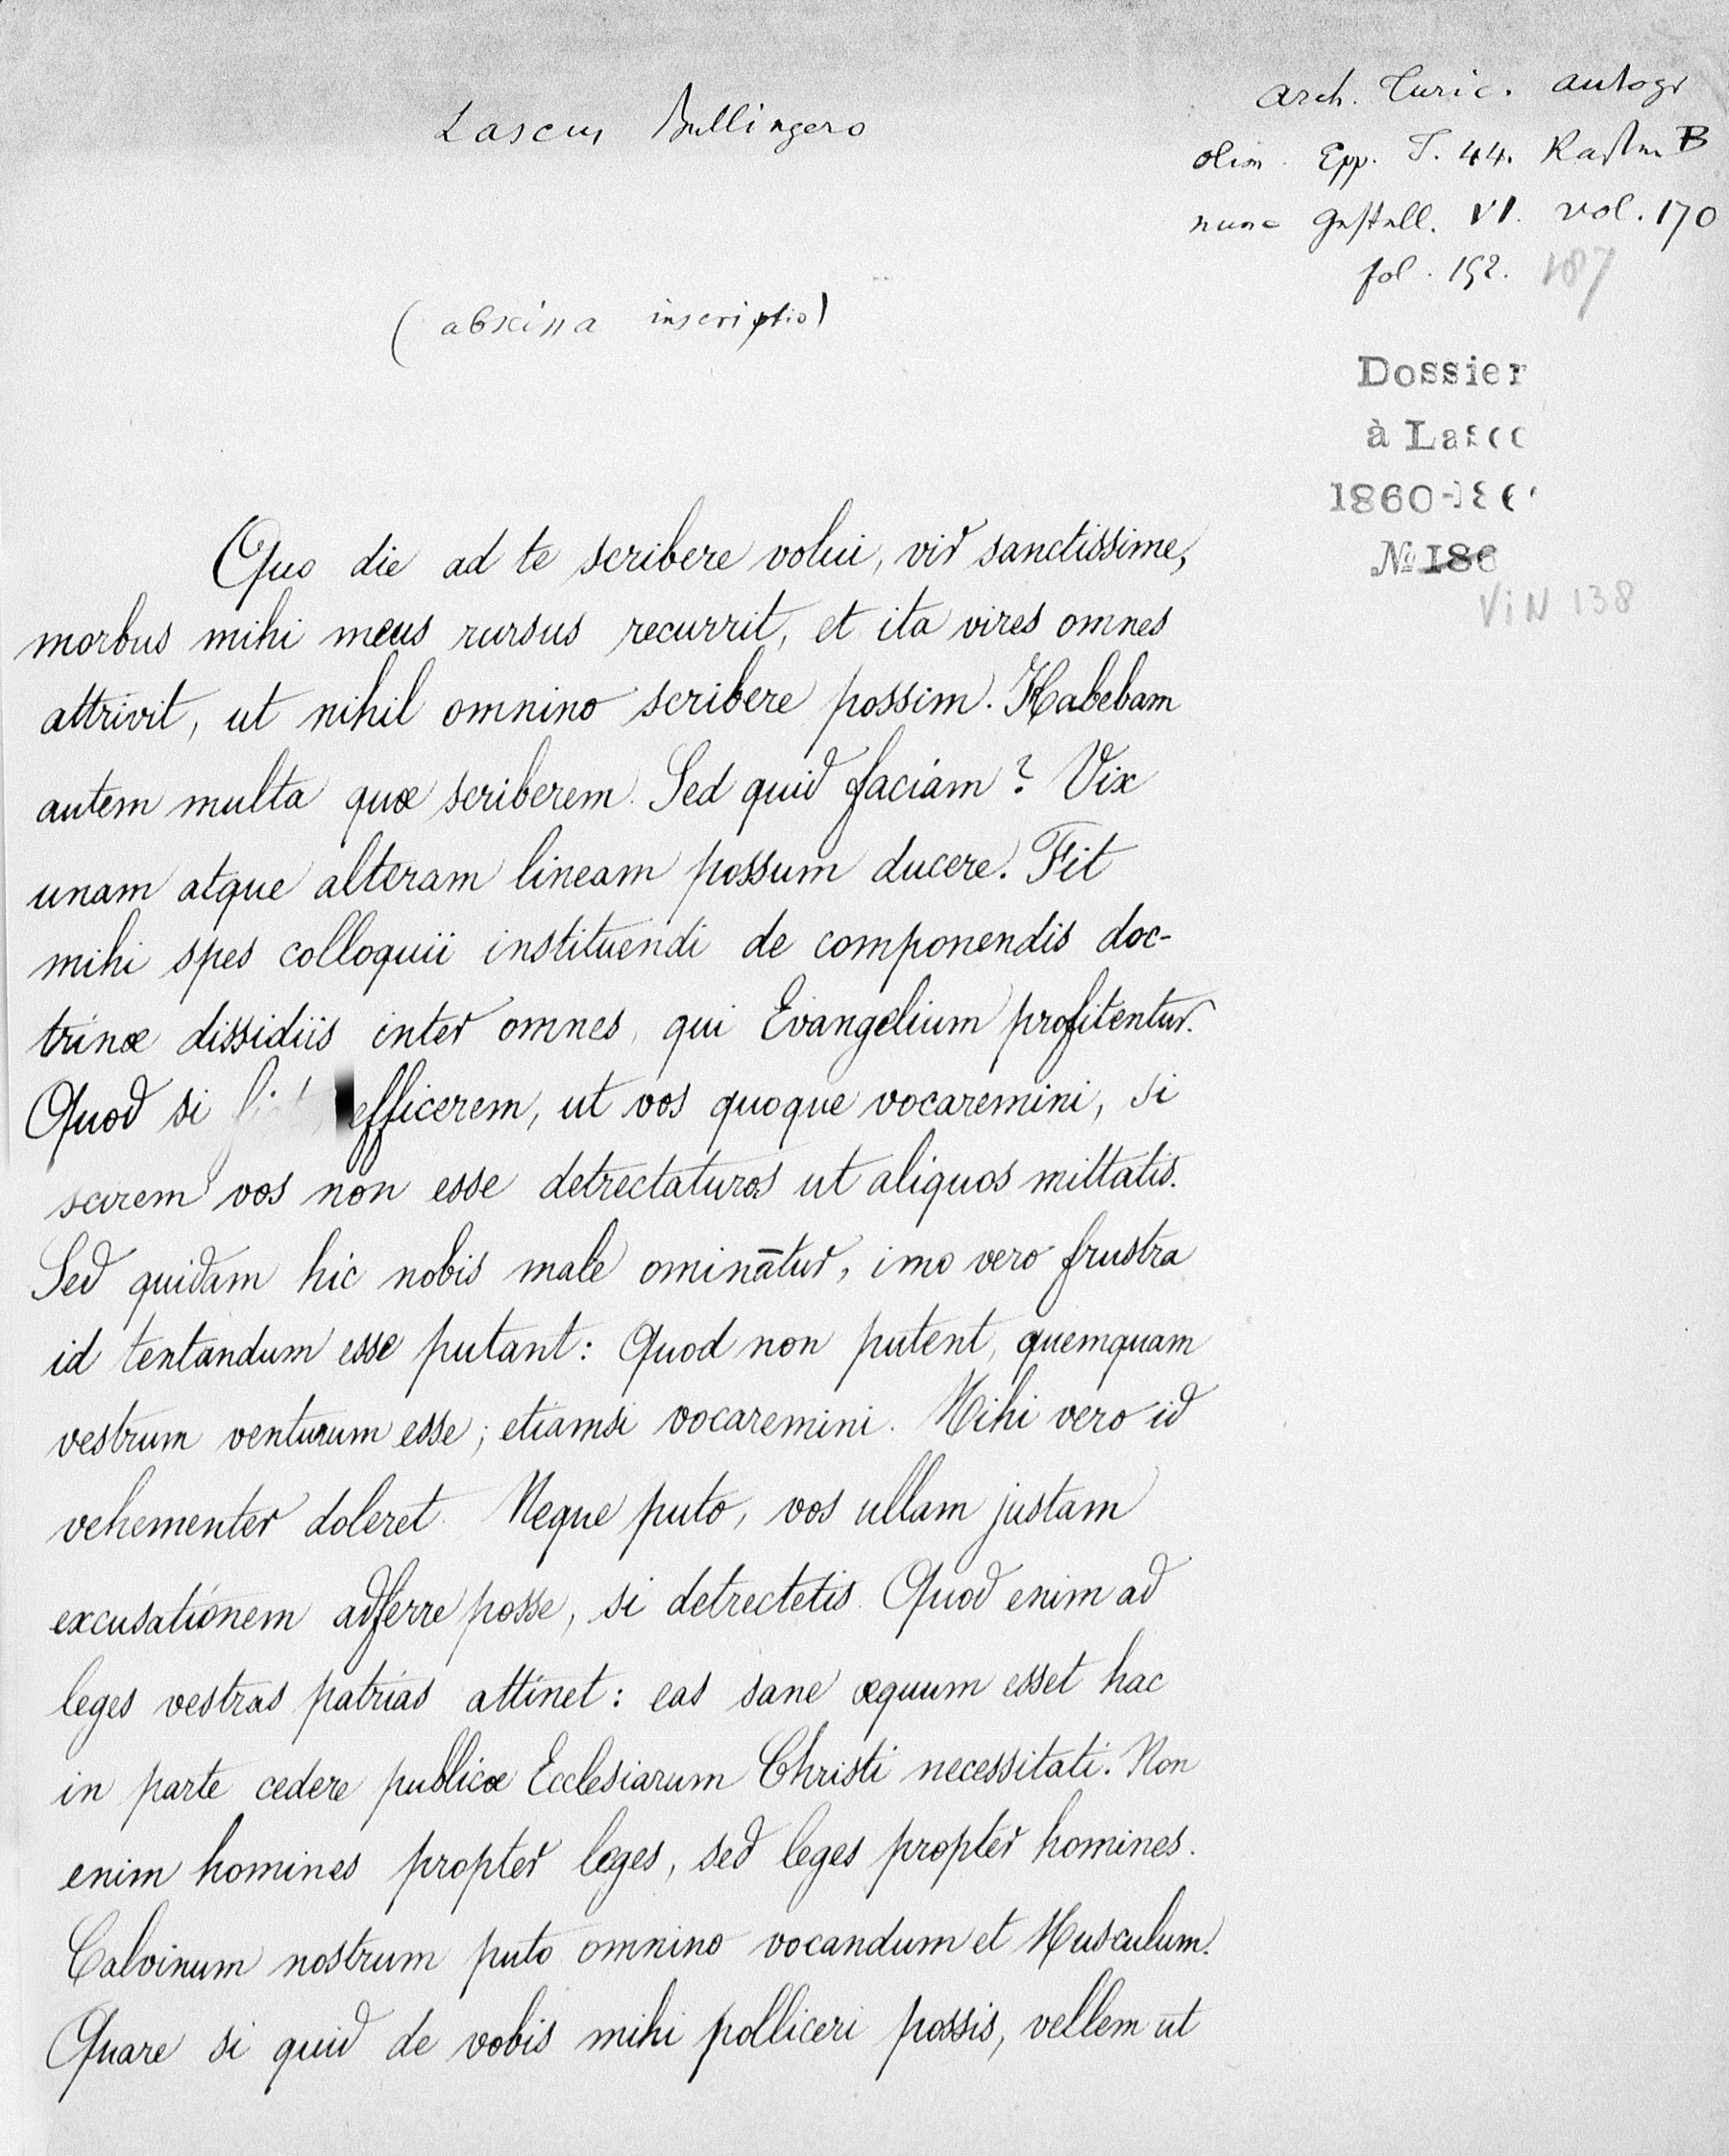 Lascus Bullingero
Arch. Turic. autogr
olim. Epp. T. 44. B
nunc Gestell. VI. vol. 170
fol. 152. 187
(abscissa inscriptio)
Dossier
à Lasco
1860-186
No 186
ViN 138
Quo die ad te scribere volui, vir sanctissime,
morbus mihi meus rursus recurrit, et ita vires omnes
attrivit, ut nihil omnino scribere possim. Habebam
autem multa quæ scriberem. Sed quid faciam? Vix
unam atque alteram lineam possum ducere. Fit
mihi spes colloquii instituendi de componendis doc-
trinæ dissidiis inter omnes, qui Evangelium profitentur.
Quod si fiat, efficerem, ut vos quoque vocaremini, si
scirem vos non esse detrectaturos ut aliquos mittatis.
Sed quidam hic nobis male ominātur, imo vero frustra
id tentandum esse putant: Quod non putent, quemquam
vestrum venturum esse; etiamsi vocaremini. Mihi vero id
vehementer doleret. Neque puto, vos ullam justam
excusationem adferre posse, si detrectetis. Quod enim ad
leges vestras patrias attinet: eas sane æquum esset hac
in parte cedere publicæ Ecclesiarum Christi necessitati. Non
enim homines propter leges, sed leges propter homines.
Calvinum nostrum puto omnino vocandum et Musculum.
Quare si quid de vobis mihi polliceri possis, vellem ut